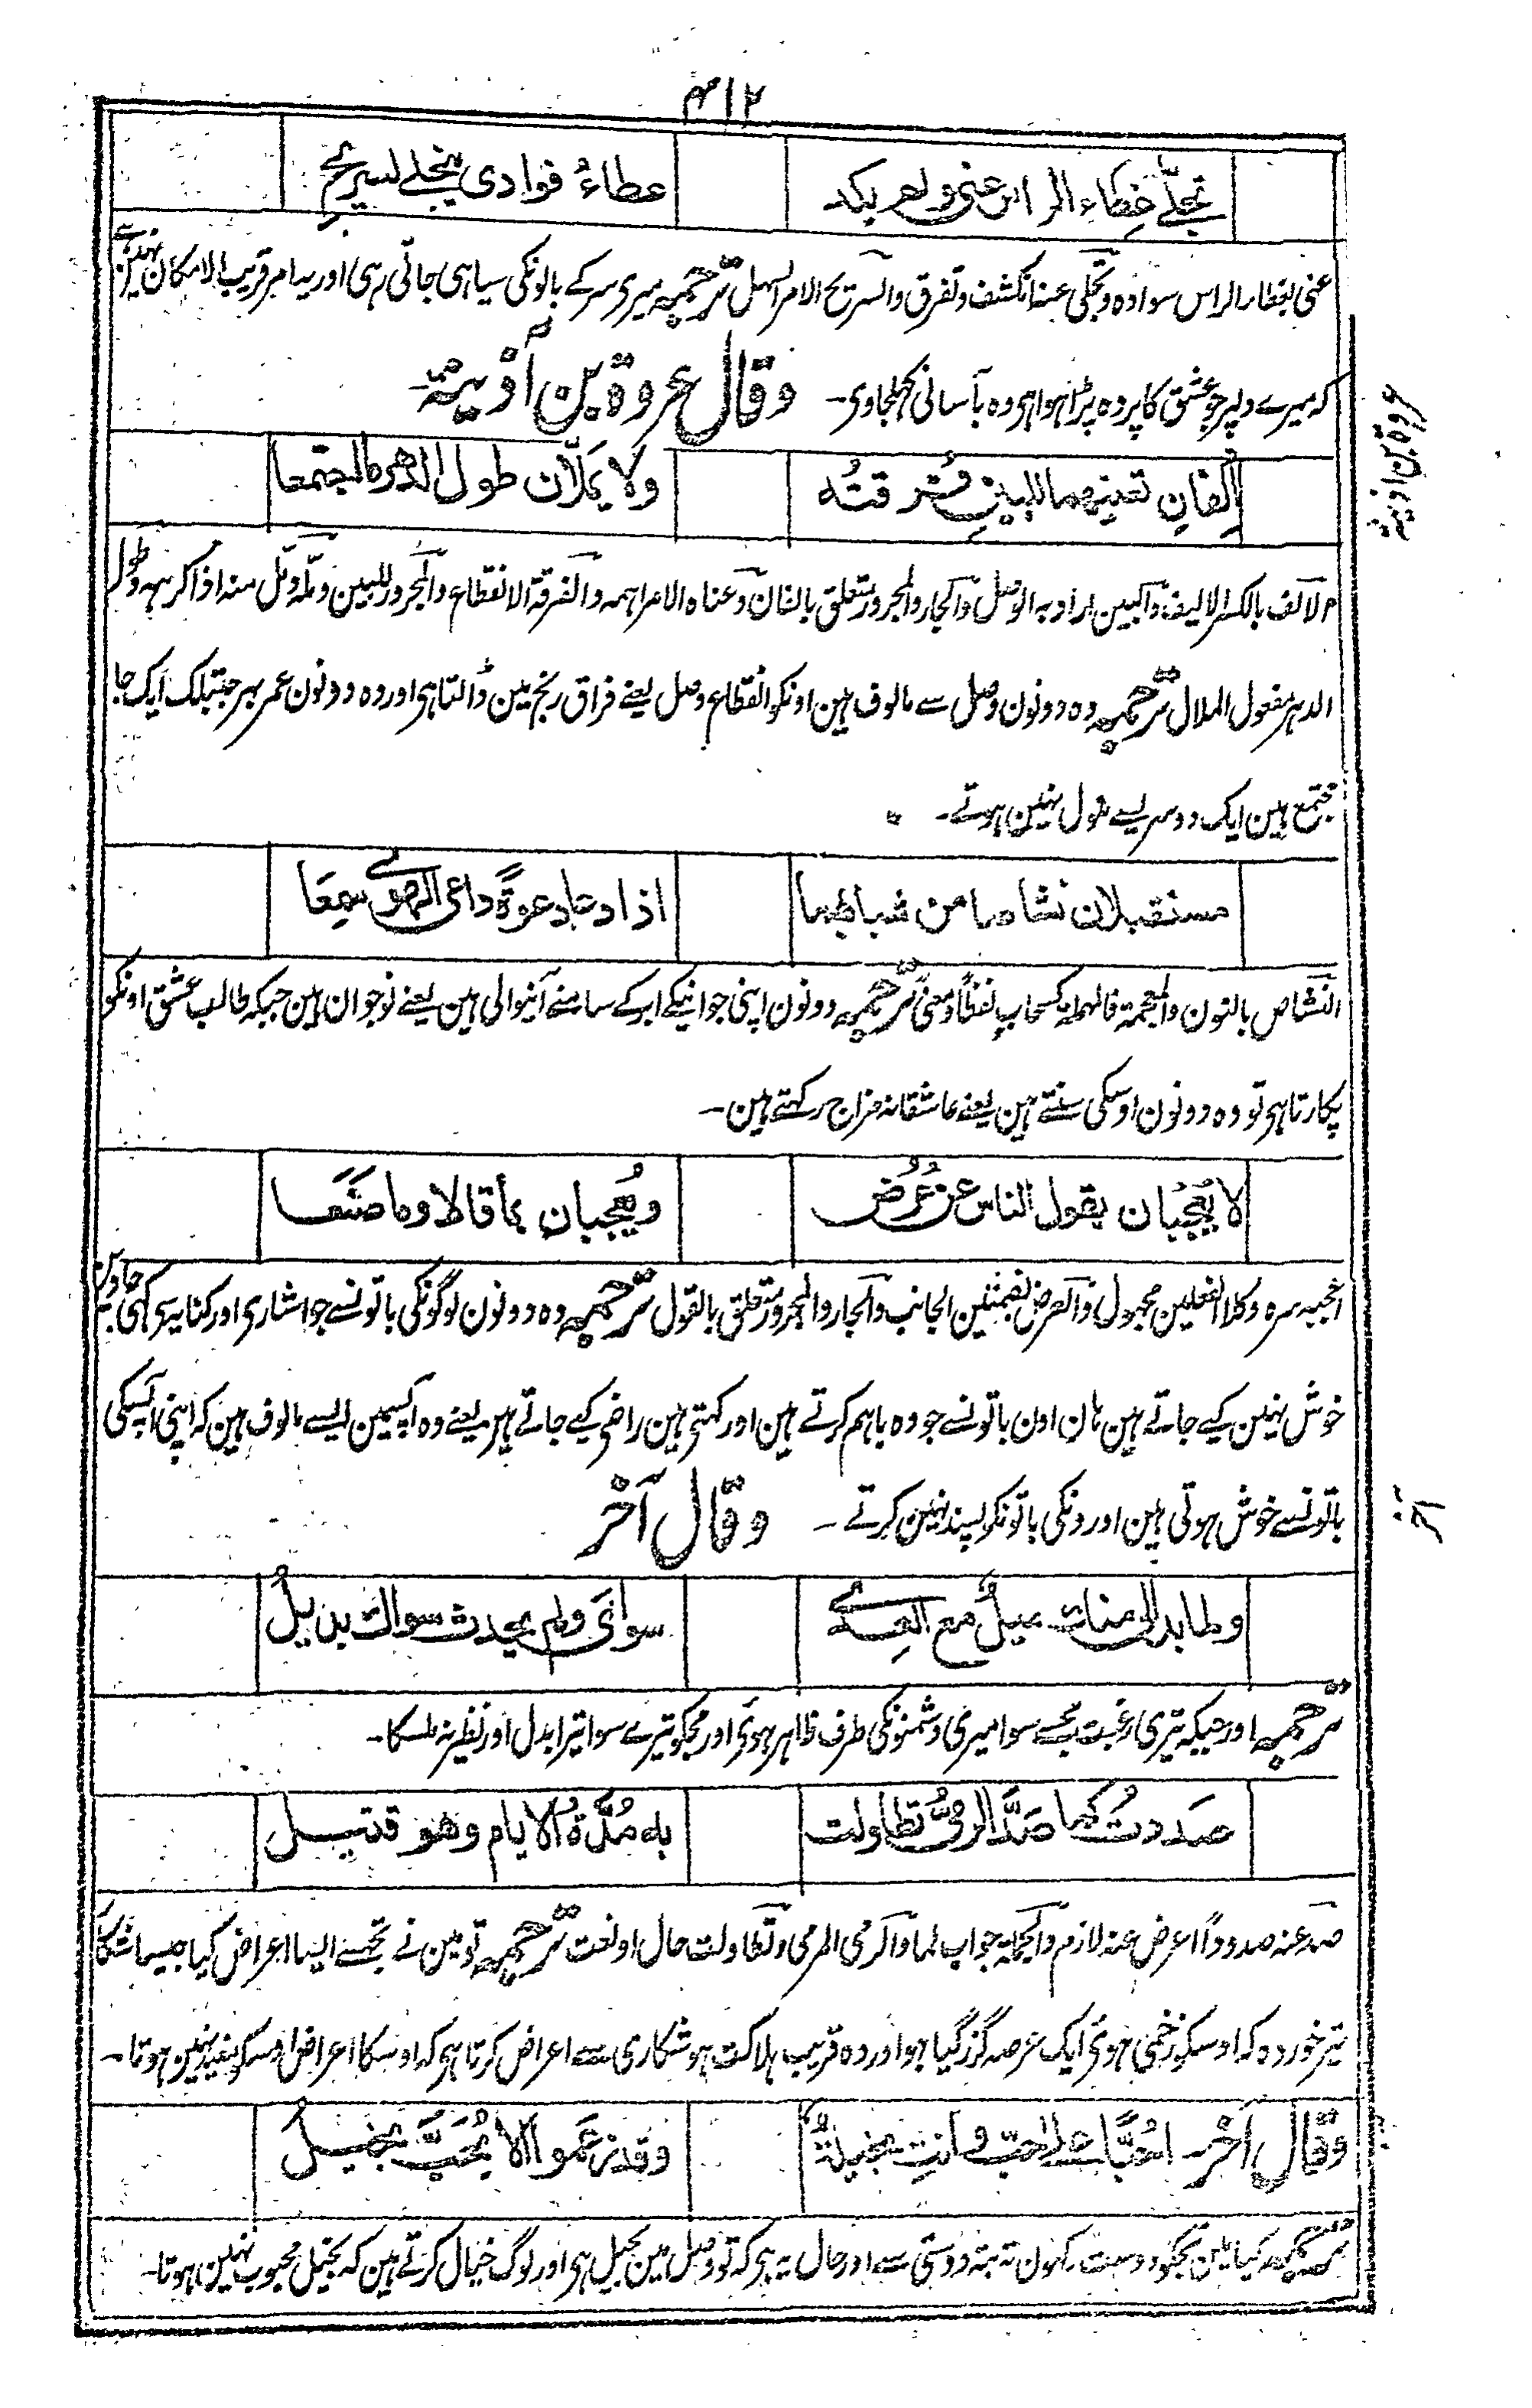 ۴۱۲
تجلّے غطاء الراس عنی ولم یکد
عطاءُ فوادی ینجلے لسریح
عنی بغطاء الراس سوادہ وتجلّی عنہ انکشف وتفرق والسریح الامر السہل ترجمہ میری سر کے بالونکی سیاہی جاتی رہی اور یہ امر قریب الامکان نہین ہے
کہ میرے دلپر جو عشق کا پردہ پڑا ہوا ہی وہ بآسانی کھلجاوی۔ وقال عروة بن اُذینة
عروة بن اذینة
اِلفانِ تعنیهما للبینِ فُرقتُه
ولا یملّان طول الدهر ما اجتمعا
الالف بالکسر الالیف والبین اراد بہ الوصل والجار والمجرور متعلق بالفان وعناہ الامر اہمہ والفرقة الانقطاع والمجرور للبین وملّہ وملّ منہ اذا کرہہ وطول
الدہر مفعول الملال ترجمہ وہ دونون وصل سے مالوف ہین اونکو انقطاع وصل یعنے فراق رنج مین ڈالتا ہی اور وہ دونون عمر بہر جبتلک ایک جا
مجتمع ہین ایک دوسریسے ملول نہین ہوتے۔
مستقبلان نشاصا من شبابهما
اذا دعا دعوةً داعی الهوی سمِعَا
النشاص بالنون والمعجمة فالمہملة کسحاب لفظاً ومعنیً ترجمہ دونون اپنی جوانیکے ابر کے سامنے آنیوالی ہین یعنے نوجوان ہین جبکہ طالب عشق اونکو
پکارتا ہی تو وہ دونون اوسکی سنتے ہین یعنے عاشقانہ مزاج رکہتے ہین۔
لا یُعجَبان بقول الناس عن عُرُض
ویُعجبان بما قالا وما صَنَعَا
اعجبہ سرہ وکلا الفعلین مجہول والعرض بضمتین الجانب والجار والمجرور متعلق بالقول ترجمہ وہ دونون لوگونکی باتونسے جو اشاری اور کنایہسے کہی جاوین
خوش نہین کیے جاتے ہین ہان اون باتونسے جو وہ باہم کرتے ہین اور کہتی ہین راضی کیے جاتے ہین یعنے وہ آپسمین ایسے مالوف ہین کہ اپنی آپسکی
باتونسے خوش ہوتی ہین اور ونکی باتونکو پسند نہین کرتے ۔ وقال آخر
آخر
ولما بدالی منك میلٌ مع العِدے
سوائی ولم یحدث سواك بدیلُ
ترجمہ اور جبکہ تیری رغبت مجھسے سوا میری دشمنونکی طرف ظاہر ہوئی اور مجکو تیرے سوا تیرا بدل اور نظیر نہ ملسکا۔
صَددتُ کما صَدَّ الرمیُّ تطاولت
به مُدَّةُ الایام وهو قتیل
صد عنہ صدوداً اعرض عنہ لازم والجملة جواب لما والرمی المرمی وتطاولت حال او نعت ترجمہ تو مین نے تجھسے ایسا اعراض کیا جیسا شکار
تیر خوردہ کہ اوسکو زخمی ہوئے ایک عرصہ گزر گیا ہو اور وہ قریب ہلاکت ہو شکاری سے اعراض کرتا ہی کہ اوسکا اعراض اوسکو مفید نہین ہوتا۔
وقال آخر احُبًّا علی حبّ وانتِ بخیلةٌ
وقد زعموا الا یُحَبَّ بخیلُ
ترجمہ کیا مین تجکو دوست رکہون تہ بتہ دوستی سے اور حال یہ ہی کہ تو وصل مین بخیل ہی اور لوگ خیال کرتے ہین کہ بخیل محبوب نہین ہوتا۔